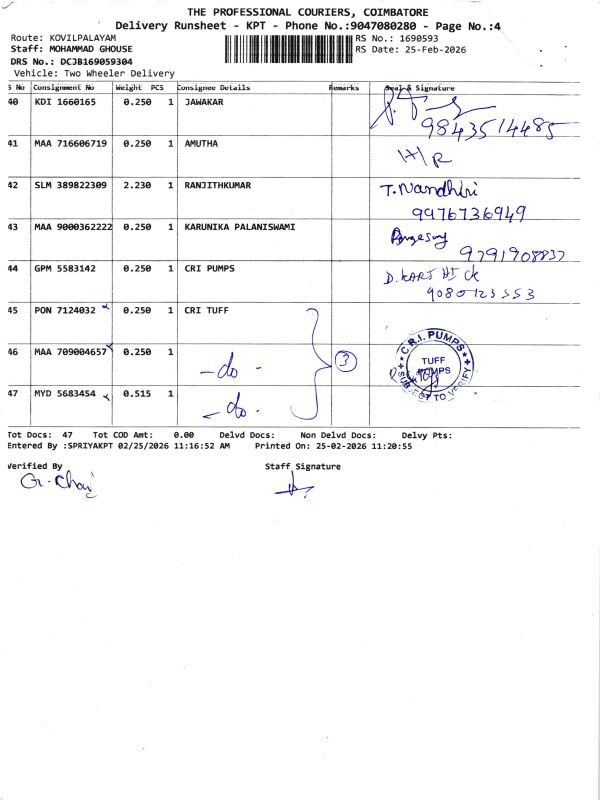 THE PROFESSIONAL COURIERS, COIMBATORE
Delivery Runsheet - KPT - Phone No.:9047080280 - Page No.:4
Route: KOVILPALAYAM
RS No.: 1690593
Staff: MOHAMMAD GHOUSE
RS Date: 25-Feb-2026
DRS No.: DCJB169059304
Vehicle: Two Wheeler Delivery
S No Consignment No Weight PCS Consignee Details Remarks Seal & Signature
40 KDI 1660165 0.250 1 JAWAKAR
9843514485
41 MAA 716606719 0.250 1 AMUTHA
H/R
42 SLM 389822309 2.230 1 RANJITHKUMAR T. Nandhini
9976736949
43 MAA 9000362222 0.250 1 KARUNIKA PALANISWAMI
9791908837
44 GPM 5583142 0.250 1 CRI PUMPS
45 PON 7124032 0.250 1 CRI TUFF
46 MAA 709004657 0.250 1 -do- 3
C.R.I. PUMPS
TUFF PUMPS
SUBJECT TO VERIFY
47 MYD 5683454 0.515 1 -do-
Tot Docs: 47 Tot COD Amt: 0.00 Delvd Docs: Non Delvd Docs: Delvy Pts:
Entered By :SPRIYAKPT 02/25/2026 11:16:52 AM Printed On: 25-02-2026 11:20:55
Verified By Staff Signature